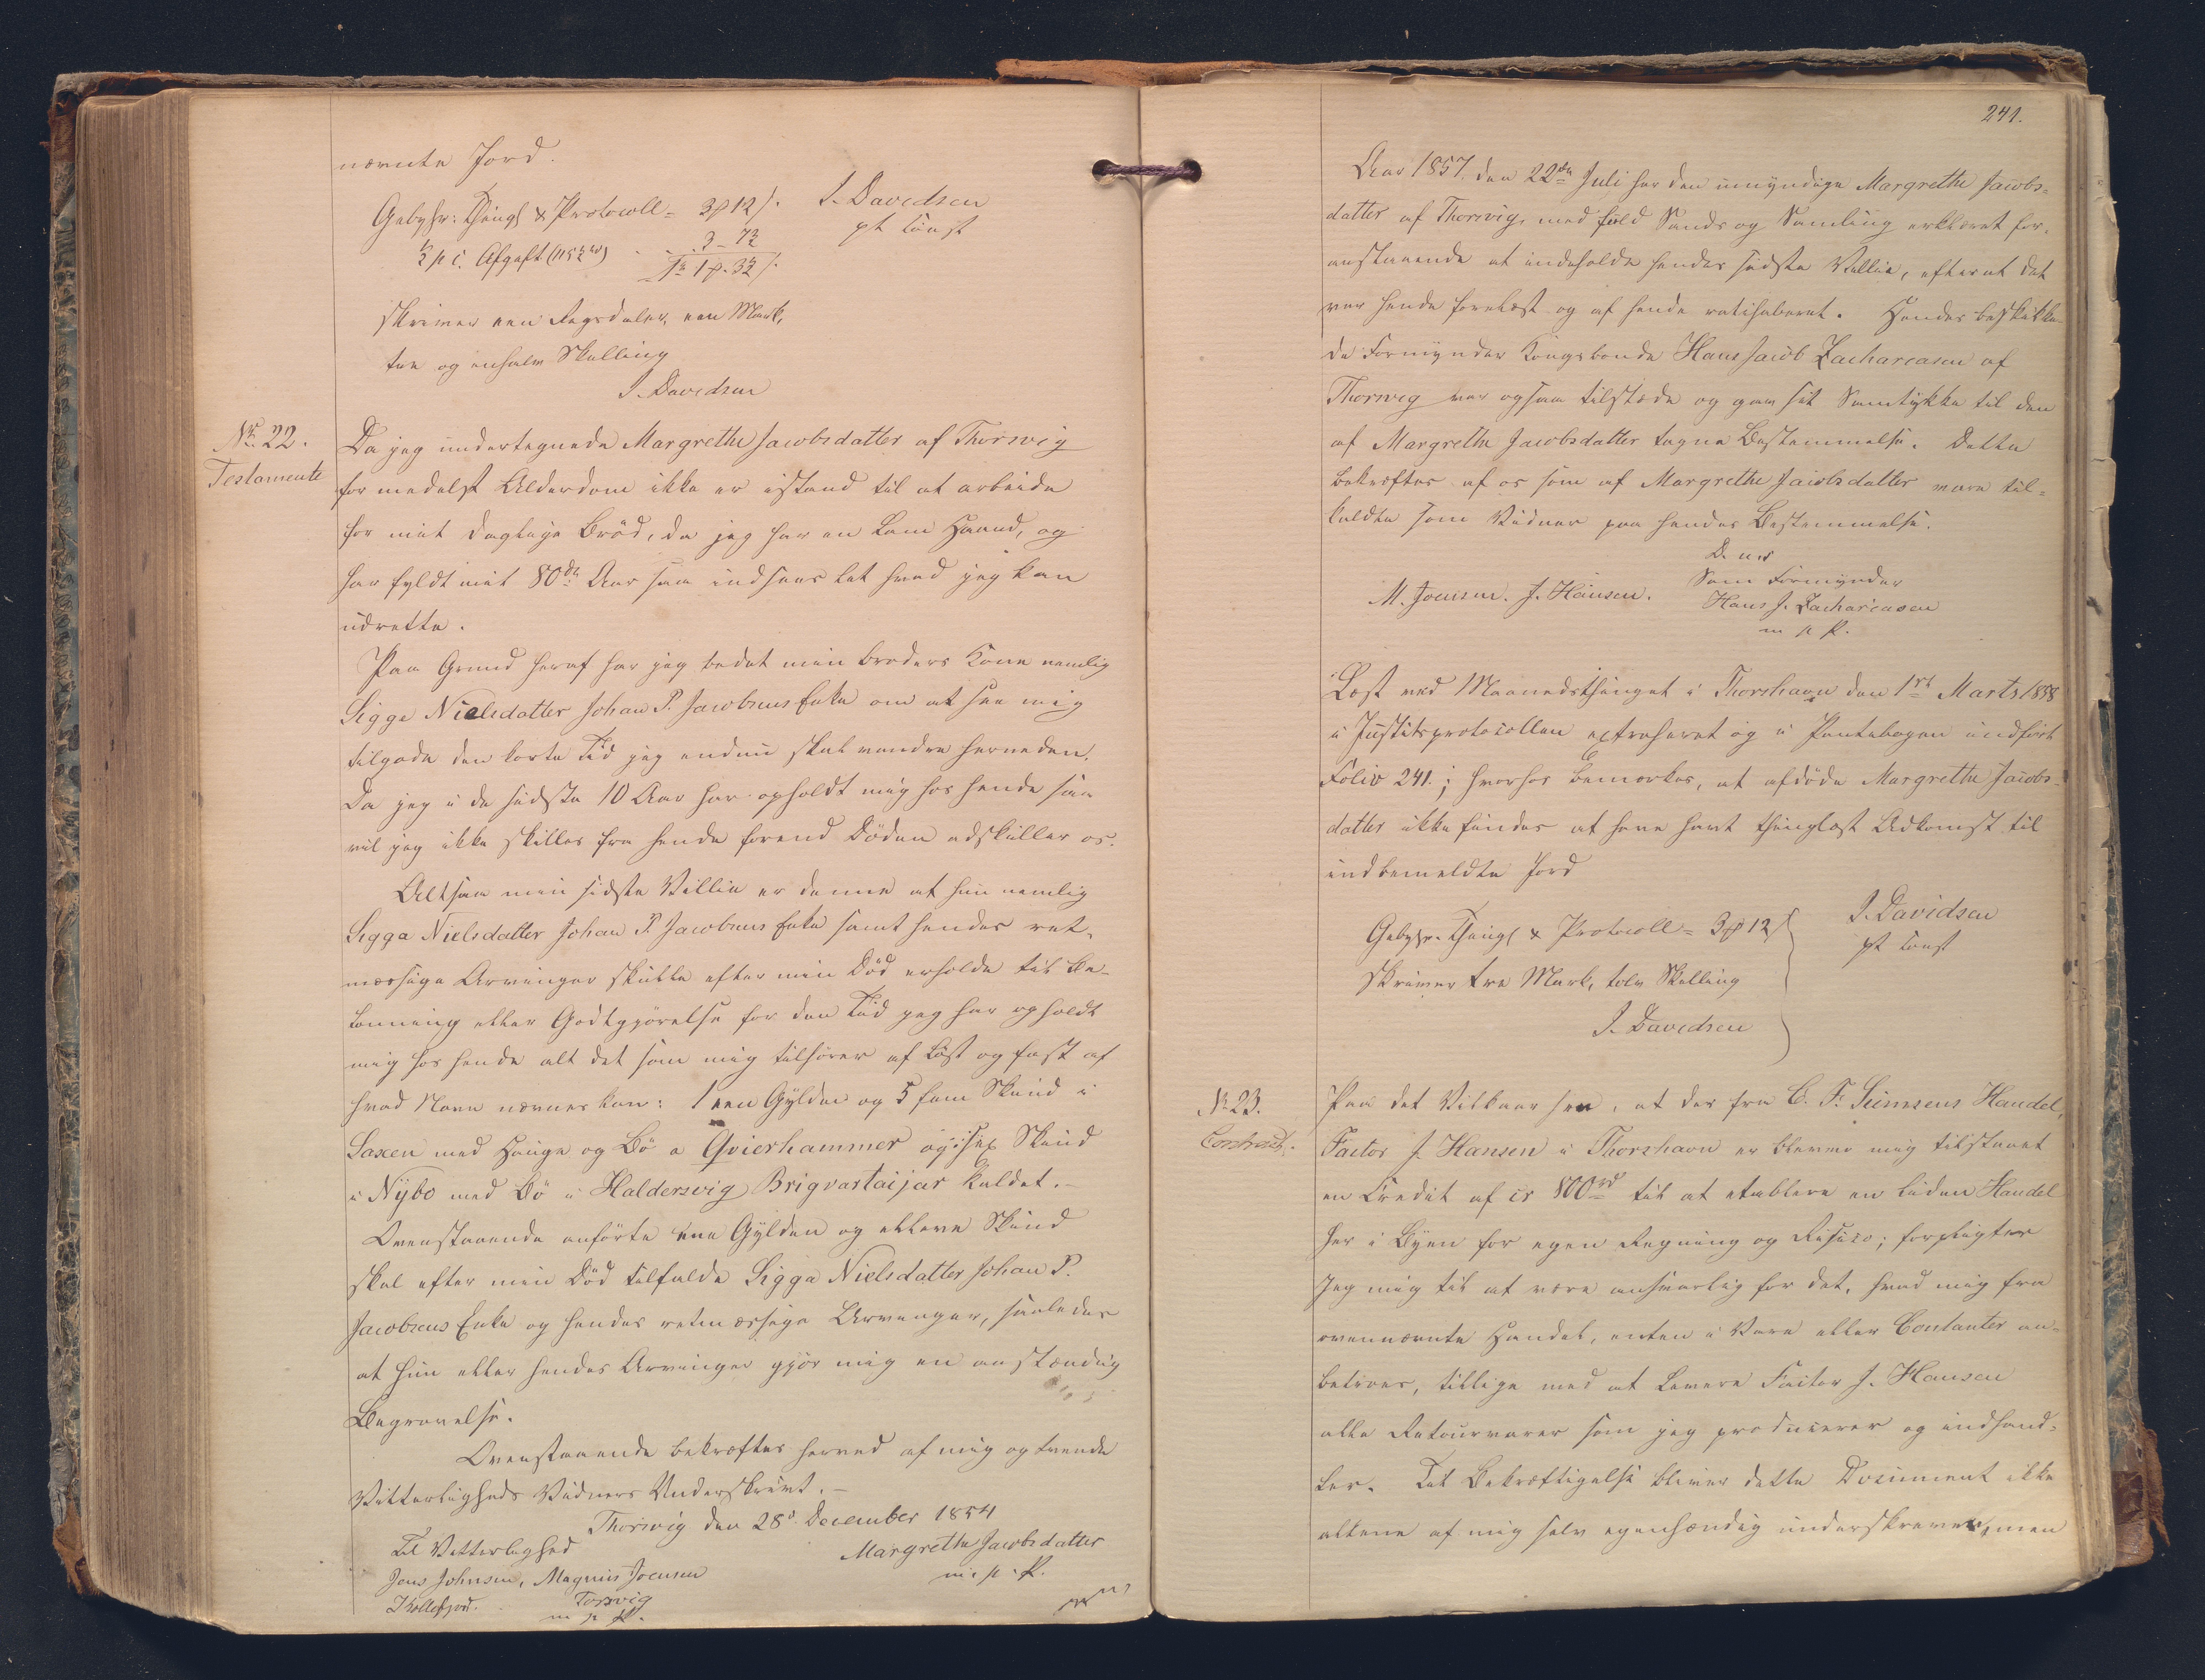 nævnte Jord.
Gebyhr: Thingl & Protocoll = 3 ₰ 12 /.
½ p c. Afgift
3 - 7½
1 ₰. 3½ /.
J. Davidsen
pt const
skriver een Rigsdaler, een Mark,
tre og enhalv Skilling
J. Davidsen
No 22.
Testamente
Da jeg undertegnede Margrethe Jacobsdatter af Thorsvig
formedelst Alderdom ikke er istand til at arbeide
for mit daglige Bröd, da jeg har en lam Haand, og
har fyldt mit 80de Aar saa indsees let hvad jeg kan
udrette.
Paa Grund heraf har jeg bedet min Broders Kone nemlig
Sigge Nielsdatter Johan P. Jacobsens Enke om at see mig
tilgode den korte Tid jeg endnu skal vandre herneden.
Da jeg i de sidste 10 Aar har opholdt mig hos hende saa
vil jeg ikke skilles fra hende forend Döden adskiller os.
Altsaa min sidste Villie er denne at hun nemlig
Sigga Nielsdatter Johan P. Jacobsens Enke samt hendes ret-
mæssige Arvinger skulle efter min Död erholde til Be-
lönning eller Godtgjörelse for den Tid jeg har opholdt
mig hos hende alt det som mig tilhörer af Löst og fast af
hvad Navn nævnes kan: 1 een Gylden og 5 fem Skind i
Saxen med Hauge og Bö a Qvierhammer og sex Skind
i Nybo med Bö i Haldersvig Brigvartaijar kaldet.-
Ovenstaaende anförte een Gylden og elleve Skind
skal efter min Död tilfalde Sigga Nielsdatter Johan P.
Jacobsens Enke og hendes retmæssige Arvinger, saaledes
at hun eller hendes Arvinger gjör mig en anstændig
Begravelse.
Ovenstaaende bekræftes herved af mig og tvende
Vitterligheds Vidners Underskrivt.-
Thorsvig den 28d December 1854
Til Vitterlighed
Margrethe Jacobsdatter
Jens Johnsen, Magnus Joensen
m. p. P.
Kollefjord. Torsvig
m p P.
241.
Aar 1857. den 22de Juli har den umyndige Margrethe Jacobs-
datter af Thorsvig, med fuld Sands og Samling erklæret for-
anstaaende at indeholde hendes sidste Villie, efterat det
var hende forelæst og af hende ratihaberet. Hendes beskikke-
de Formynder Kongsbonde Hans Jacob Zachariasen af
Thorsvig var ogsaa tilstede og gav sit Samtykke til den
af Margrethe Jacobsdatter tagne Bestemmelse. Dette
bekræftes af os som af Margrethe Jacobsdatter vare til-
kaldte som Vidner paa hendes Bestemmelse.
D. u. s
Som Formynder
M. Joensen. J. Hansen.
Hans J. Zachariasen
m p P.
Læst ved Maanedsthinget i Thorshavn den 1st Marts 1858
i Justitsprotocollen extraheret og i Pantebogen indfört
Folio 241.; hvorhos bemærkes, at afdöde Margrethe Jacobs-
datter ikke findes at have havt thinglæst Adkomst til
indbemeldte Jord
J. Davidsen
pt const
Gebyhr. Thingl & Protocoll = 3 ₰ 12 /
skriver tre Mark, tolv Skilling
J. Davidsen
No 23.
Contract.
Paa det Vilkaar her, at der fra C. F. Siemsens Handel,
Factor J. Hansen i Thorshavn er bleven mig tilstaaet
en Credit af cr 800rd til at etablere en liden Handel
her i Byen for egen Regning og Risico; forpligter
Jeg mig til at være ansvarlig for det, hvad mig fra
ovennævnte Handel, enten i Vare eller Contanter an-
betroes, tillige med at levere Factor J. Hansen
alle Retourvarer som jeg producerer og indhand-
ler. Til Bekræftigelse bliver dette Document ikke
allene af mig selv egenhændig underskreven, men